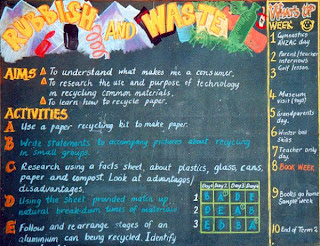 RUBBISH AND WASTE
AIMS To understand what makes me a consumer.
To research the use and purpose of technology
in recycling common materials.
To learn how to recycle paper.
ACTIVITIES
A Use a paper recycling kit to make paper.
B Write statements to accompany pictures about recycling
in small groups.
C Research using a facts sheet, about plastics, glass, cans,
paper and compost. Look at advantages/
disadvantages.
D Using the sheet provided match up
natural break-down times of materials.
E Follow and rearrange stages of how
aluminium can being recycled. Identify
Day 1 Day 2 Day 3 Day 4
1 B A D E
2 D E A B
3 E D B A
What's it?
WEEK
1 Gymnastics
ANZAC day
2 Parent/teacher
interviews
3 Golf lesson
4 Museum
visit
5 Grandparents
day.
6 Winter
Skies
7 Teacher only
day.
8 BOOK WEEK
9 Books at home
Sample week
10 End of Term 2